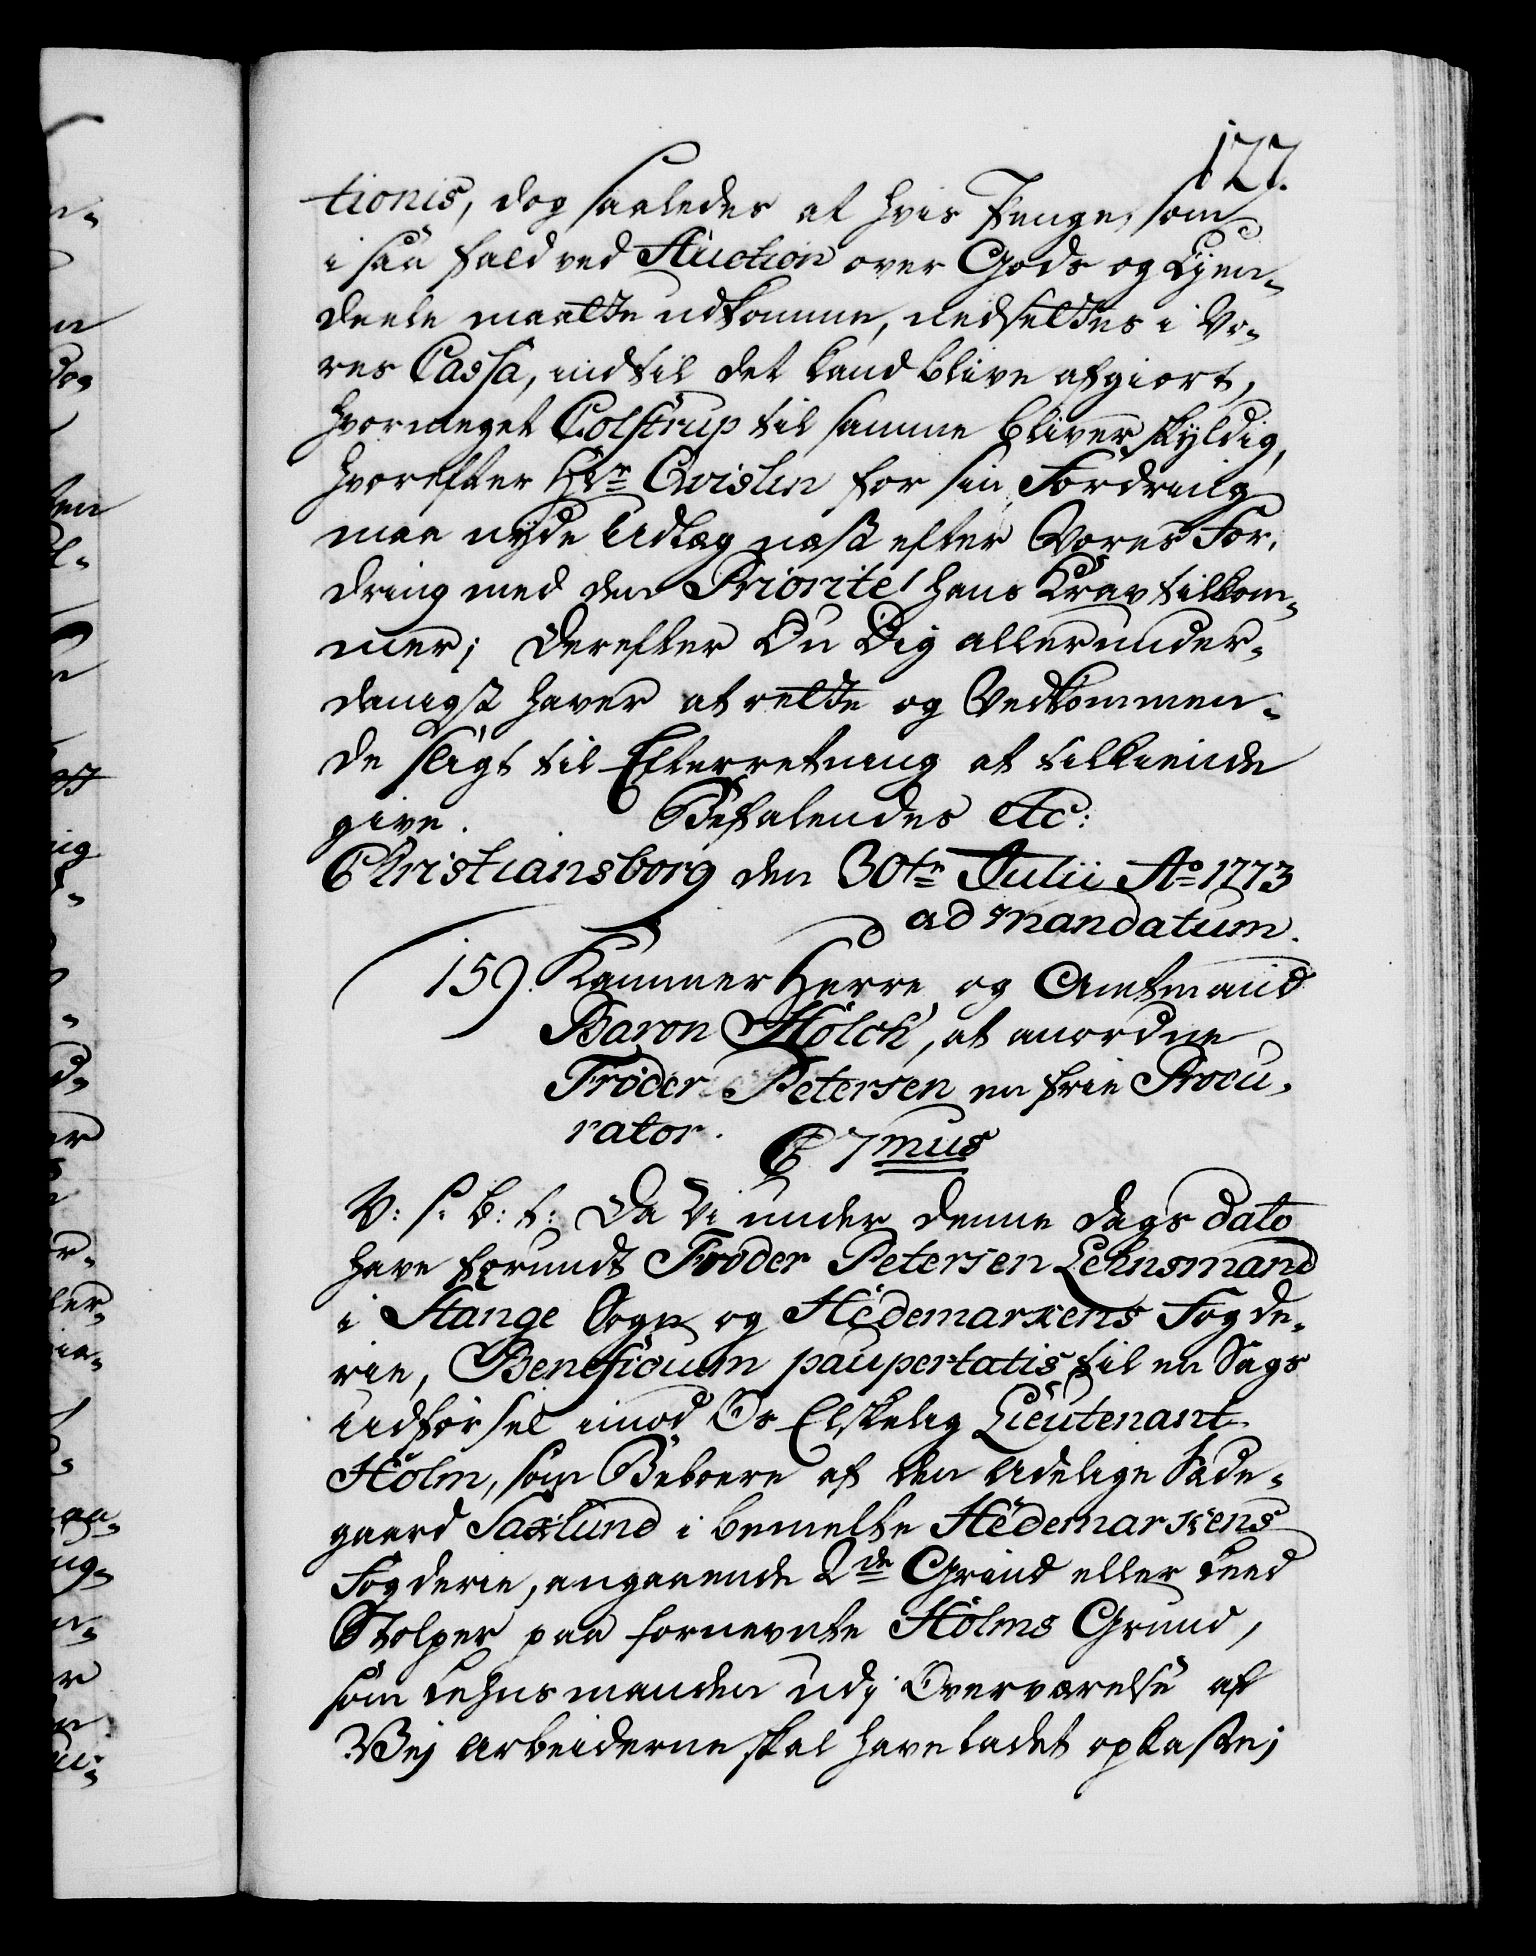 127.
tionis, dog saaledes at hvis Penge, som
i saa fald ved Auction over Gods og Ejen-
deele maatte udkomme, nedsettes i Vo-
res Cassa, indtil det kand blive afgiort,
hvormeget Colstrup til samme bliver skyldig,
hvorefter Hr. Qvislin for sin Fordring
maa nyde Udlæg næst efter Vores For-
dring med den Priorité hans Krav tilkom-
mer; Derefter Du Dig allerunder-
danigst haver at rette og Vedkommen-
de sligt til Efterretning at tilkiende
give. Befalendes etc:
Christiansborg den 30te Julii Ao 1773
ad mandatum.
159. Kammer Herre og Amtmand
Baron Hölck, at anordne
Tröder Petersen en frie Procu-
rator. C 7mus
V: S: B: t: Da Vi under denne dags dato
have forundt Tröder Petersen Lehnsmand
i Stange Sogn og Hedemarkens Fogde-
rie, Beneficium paupertatis til en Sags
Udförsel imod Os Elskelig Lieutenant
Holm, som Beboere af den Adelige Sæde-
gaard Saxlund i bemelte Hedemarkens
Fogderie, angaaende 2de Grind eller Leed
Stolper paa fornevnte Holms Grund,
som Lehnsmanden udj Overværelse af
Vej Arbeiderne skal have ladet opkaste;